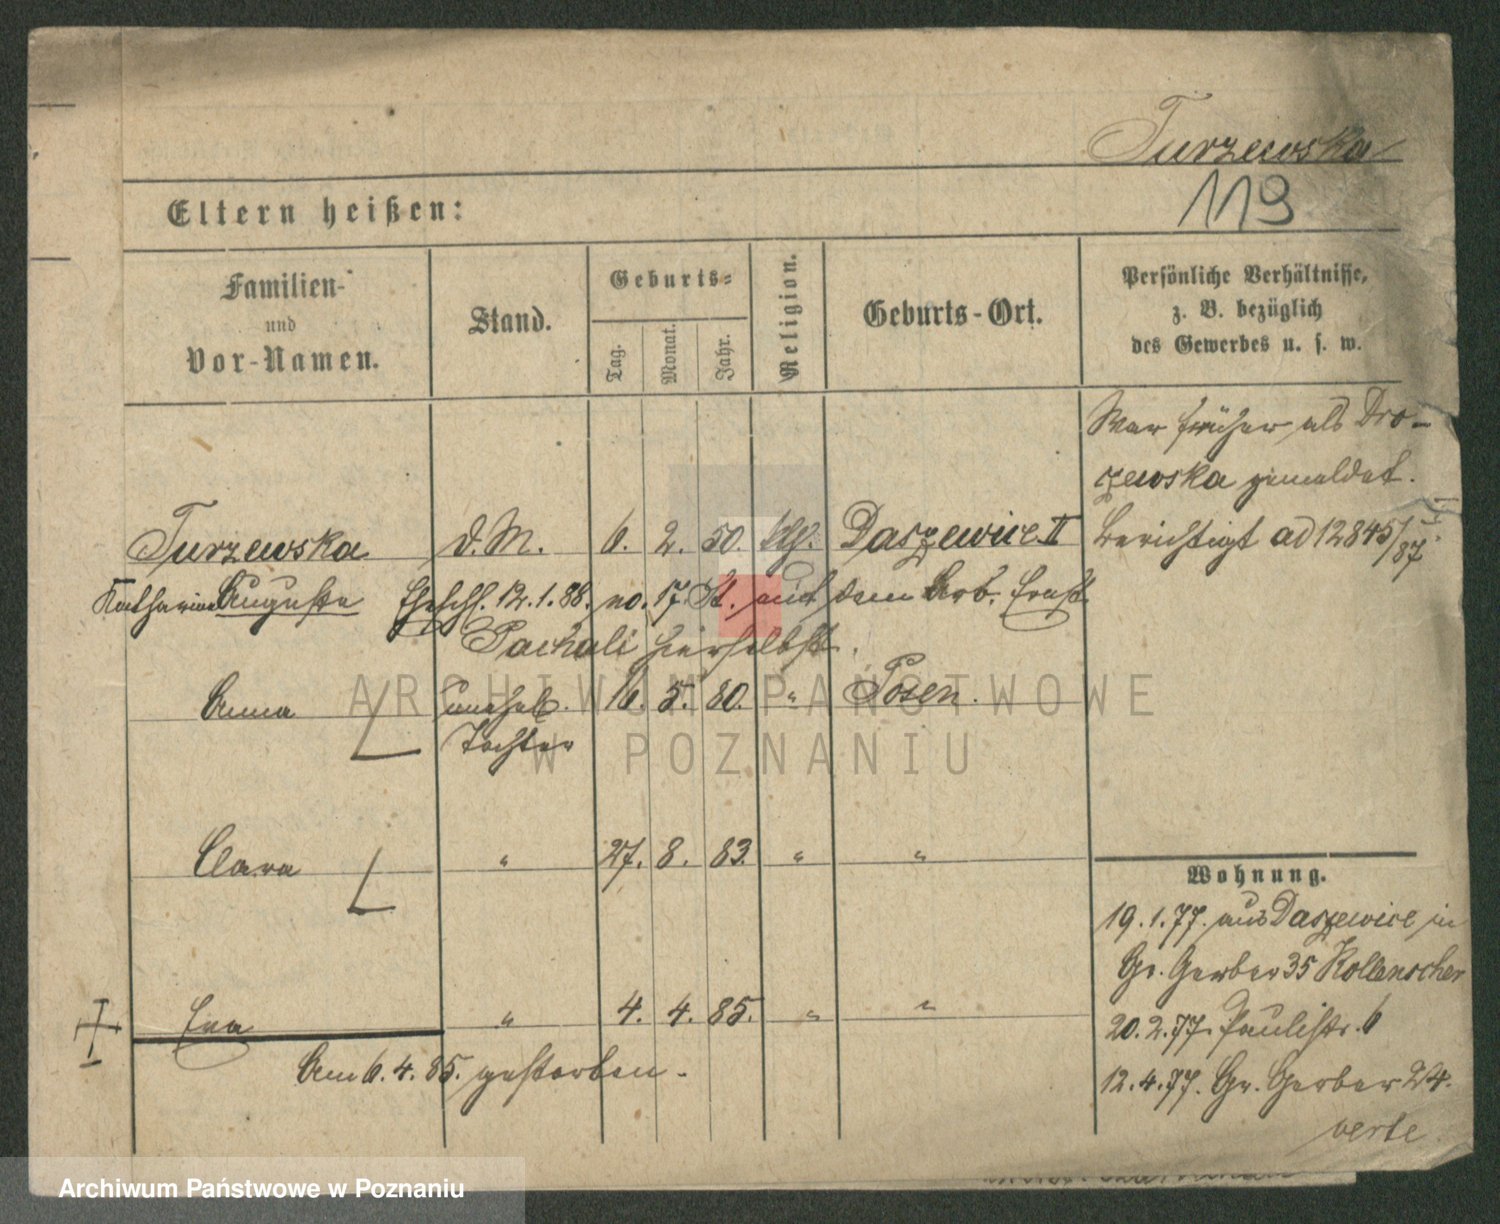 Turzewska
119
Eltern heißen:
Familien-
und
Vor-Namen.
Stand.
Geburts-
Tag.
Monat.
Jahr.
Religion.
Geburts-Ort.
Persönliche Verhältnisse,
z. B. bezüglich
des Gewerbes u. s. w.
War früher als Dro-
zewska gemeldet.
Berichtigt ad 12845/87
Turzewska d. M. 6. 2. 50. kth. Daszewice II
Katharina Auguste Eheschl. 12.1.88. no. 17 St. mit dem Arb. Ernst
Pachali hierselbst.
Anna unehel. 16. 5. 80. " Posen.
Tochter
Clara " 27. 8. 83. " "
Eva " 4. 4. 85. " "
Am 6.4.85. gestorben.
Wohnung.
19.1.77. aus Daszewice in
Gr. Gerber 35 Kollenscher
20.2.77. Paulistr. 6
12.4.77. Gr. Gerber 24.
verte
ARCHIWUM PAŃSTWOWE
W POZNANIU
Archiwum Państwowe w Poznaniu